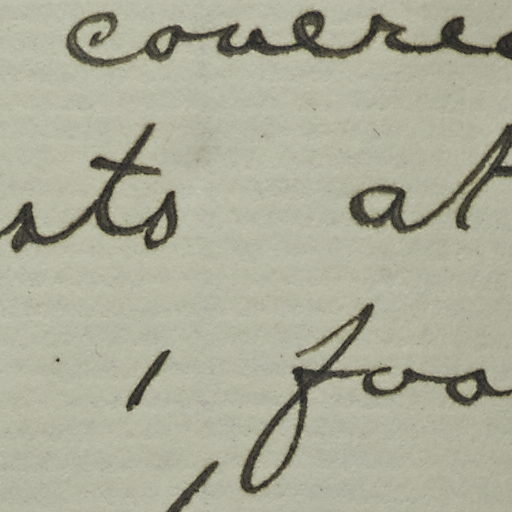 covere
sts at
, foo